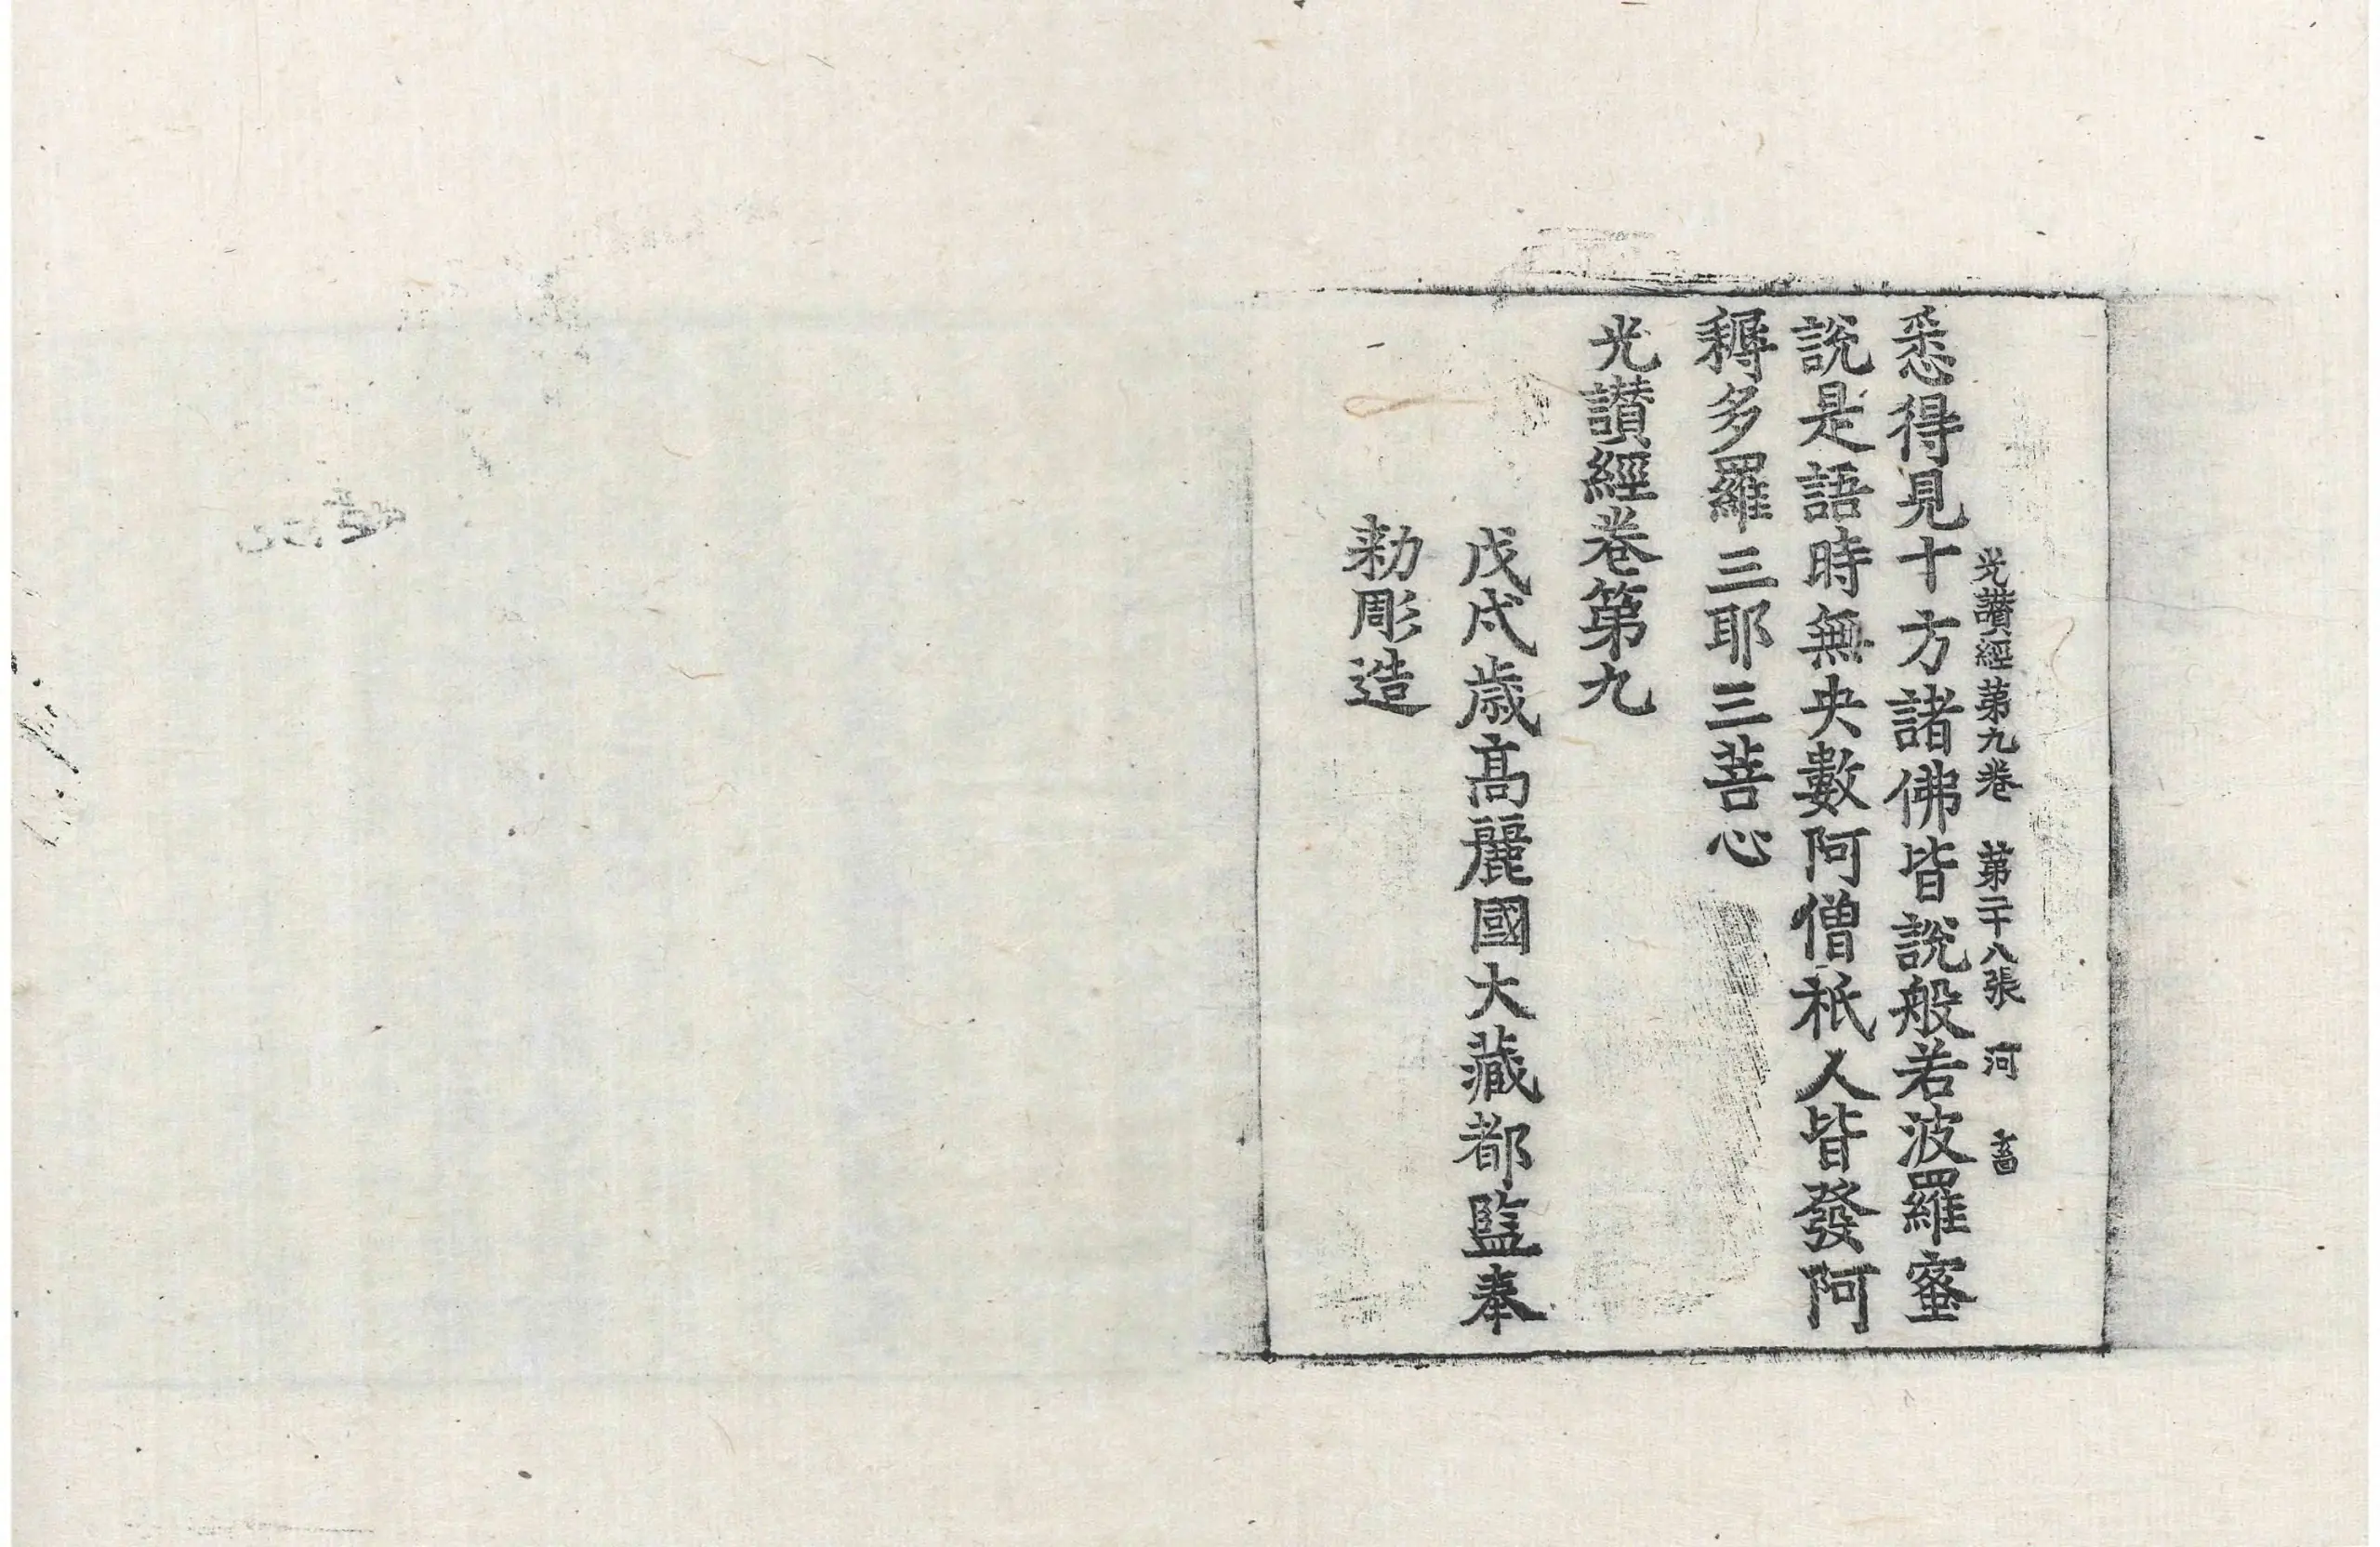 光讃經第九卷 第二十八張 河
悉得見十方諸佛皆說般若波羅蜜
說是語時無央數阿僧祇人皆發阿
耨多羅三耶三菩心
光讃經卷第九
戊戌歳髙麗國大藏都監奉
勅彫造